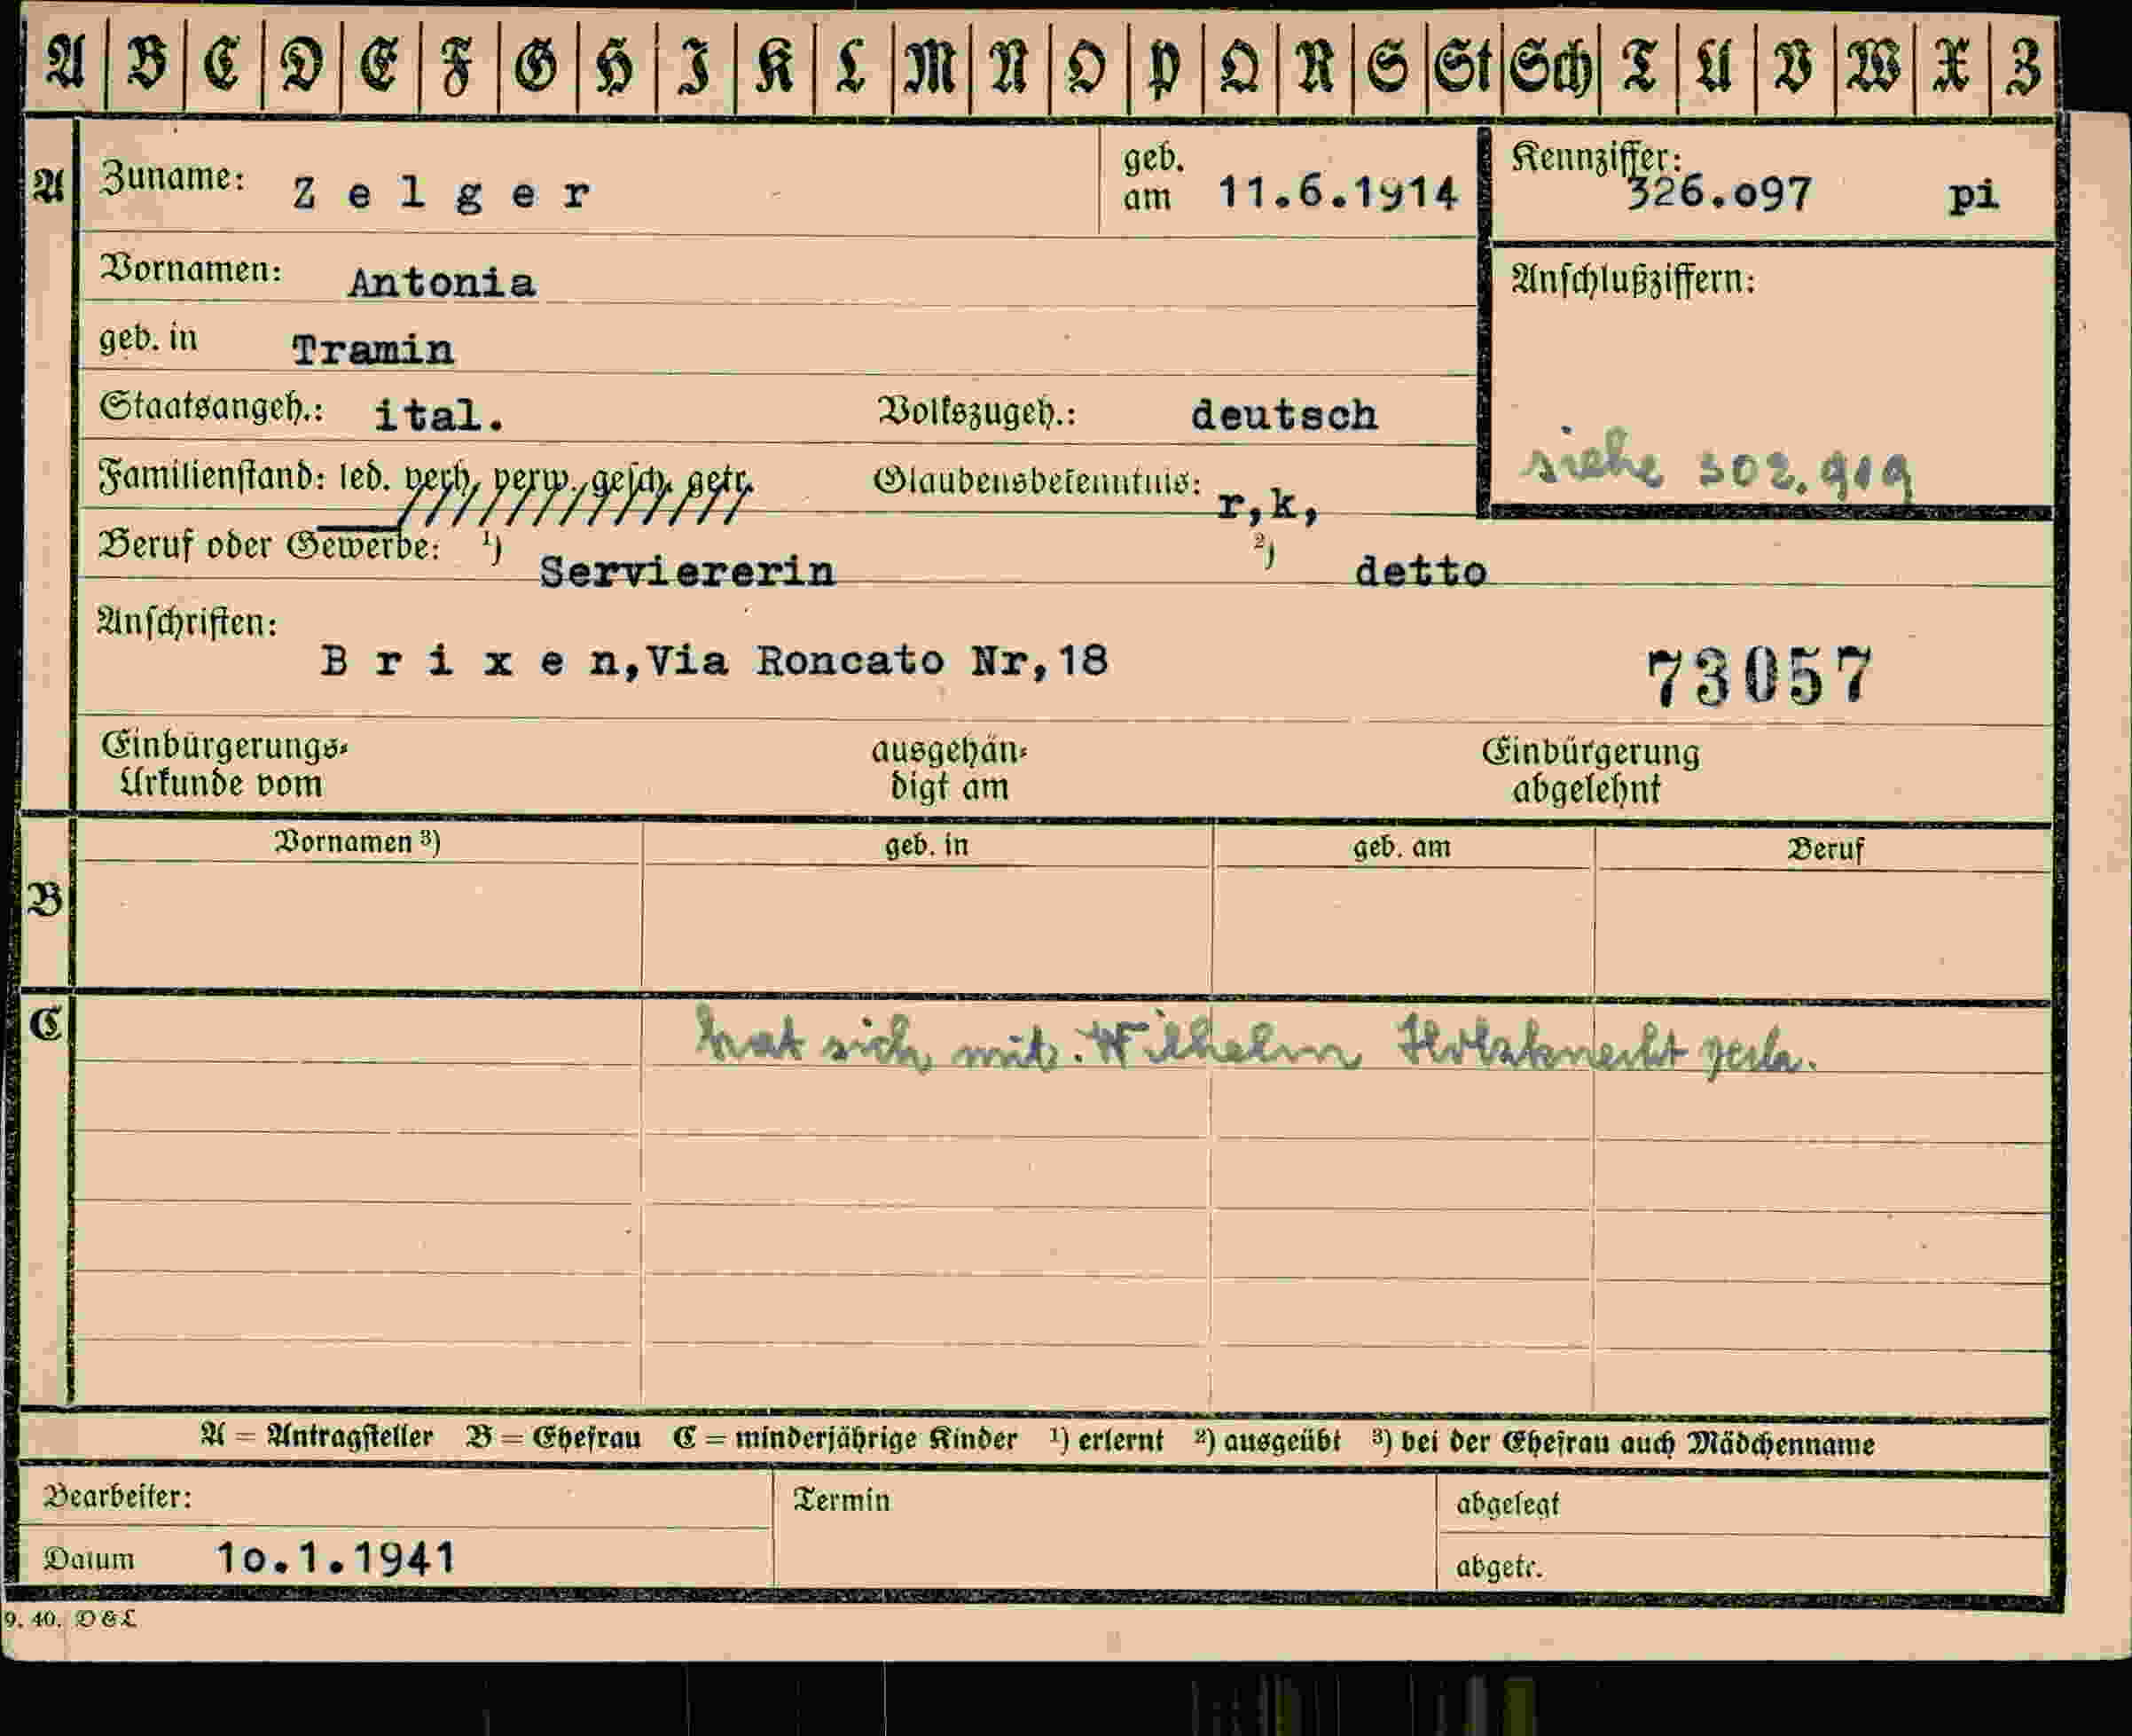 A B C D E F G H I K L M N O P Q R S St Sch T U V W X Z
A Zuname: Zelger geb. am 11.6.1914 Kennziffer: 326.o97 pi
Vornamen: Antonia Anschlußziffern:
geb. in Tramin
Staatsangeh.: ital. Volkszugeh.: deutsch
siehe 302.919
Familienstand: led. verh. verw. gesch. getr. Glaubensbekenntnis: r,k,
Beruf oder Gewerbe: ¹) Serviererin ²) detto
Anschriften:
Brixen,Via Roncato Nr,18 73057
Einbürgerungs-Urkunde vom ausgehän-digt am Einbürgerung abgelehnt
Vornamen ³) geb. in geb. am Beruf
B
C hat sich mit. Wilhelm Holzknecht verh.
A = Antragsteller B = Ehefrau C = minderjährige Kinder ¹) erlernt ²) ausgeübt ³) bei der Ehefrau auch Mädchenname
Bearbeiter: Termin abgelegt
Datum 1o.1.1941 abgetr.
9. 40. D & L